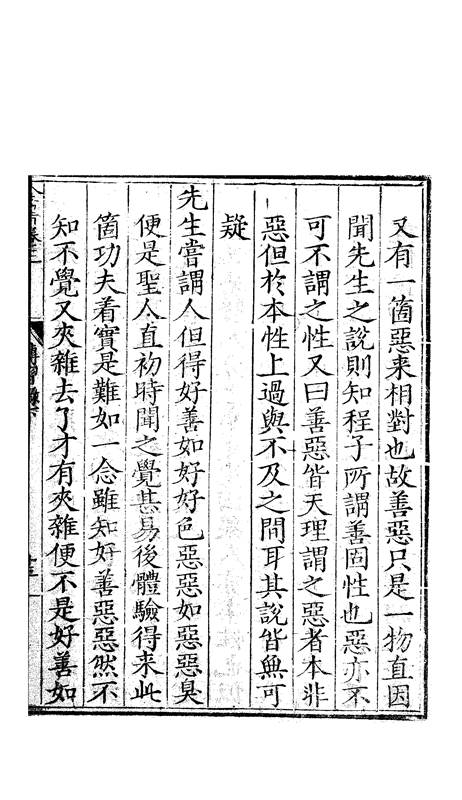 又有一箇惡來相對也故善惡只是一物直因
聞先生之說則知程子所謂善固性也惡亦不
可不謂之性又曰善惡皆天理謂之惡者本非
惡但於本性上過與不及之間耳其說皆無可
疑
先生嘗謂人但得好善如好好色惡惡如惡惡臭
便是聖人直初時聞之覺甚易後體驗得來此
箇功夫着實是難如一念雖知好善惡惡然不
知不覺又夾雜去了才有夾雜便不是好善如